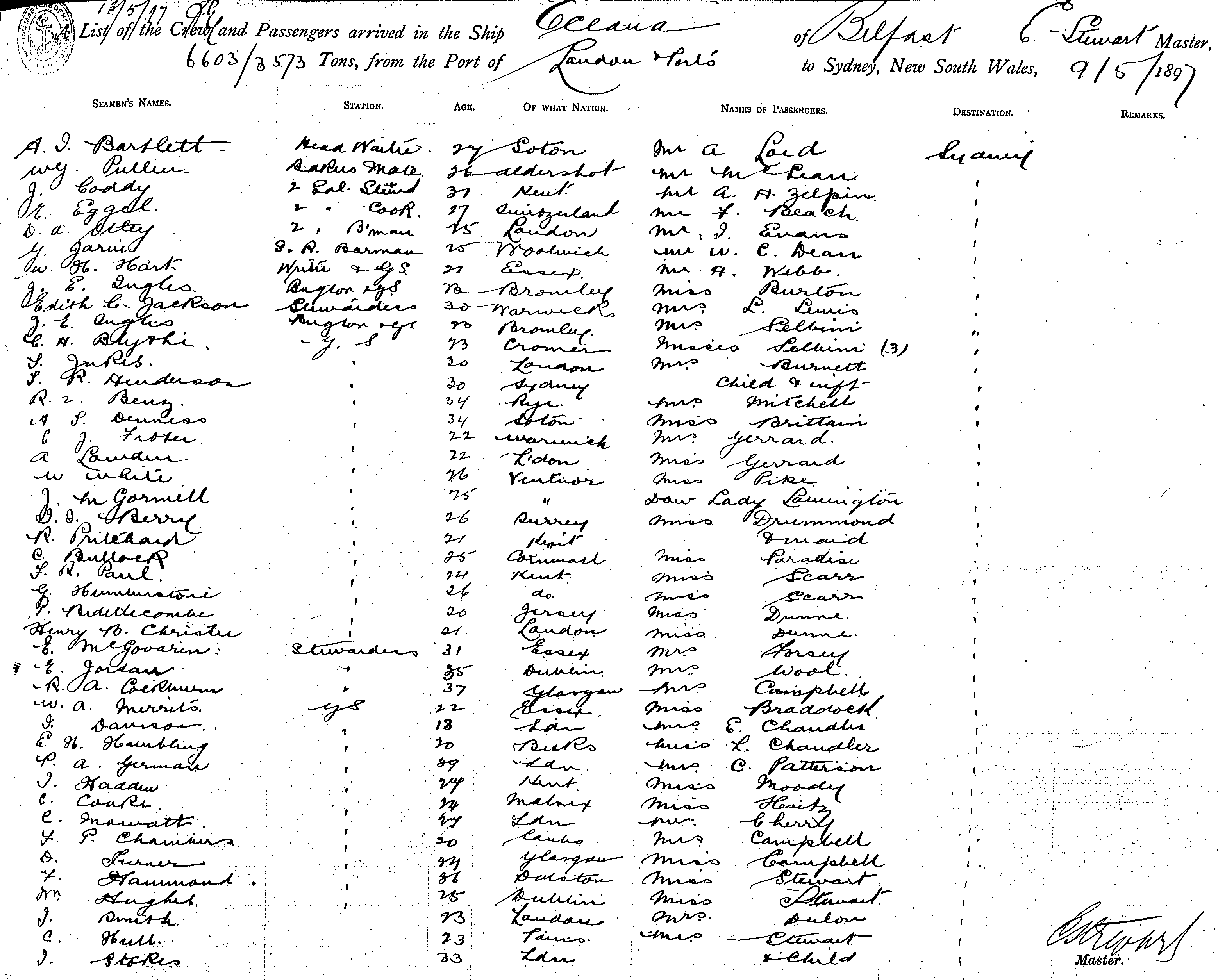 18/5/97
List of the Crew and Passengers arrived in the Ship Oceana of Belfast E Stewart Master,
6603/3573 Tons, from the Port of London & Ports to Sydney, New South Wales, 9/5/1897
SEAMEN'S NAMES. STATION. AGE. OF WHAT NATION. NAMES OF PASSENGERS. DESTINATION. REMARKS.
A. J. Bartlett Head Waiter 27 Soton Mr A Lord Sydney
WG Pullen Bakers Mate 26 Aldershot Mr McLean "
J. Coddy 2 Sal Stewd Kent Mr A H Zelpin "
Eggel 2 " Cook. 27 Switzerland Mr F. Beach "
D. A. 2 " B'man 25 London Mr. J. Evans "
Jarvis S. R. Barman 25 Woolwich Mr W. C. Dean "
W. H. Hart Writer & GS 21 Essex Mr A. Webbe "
J. E. Inglis & GS Bromley Miss Burton "
Edith C. Jackson Stewardess 30 Warwicks Mrs L. Lewis "
J. E. Inglis & GS Bromley Mrs Selbini "
C. A. Blythe. G. S 23 Cromer Misses Selbini (3) "
Jukes. " 20 London Mrs Burnett "
R. Henderson " 30 Sydney Child & inft "
R. Benz " 34 Rye Mrs Mitchell "
A S. Denness " 34 Soton Miss Brittain "
C J. Foster " 22 Warwick Mrs Gerrard. "
A Lawden " 22 L'don Miss Gerrard "
W White " 26 Ventnor Miss Pike "
J. McGormell " 25 " Dow Lady Lamington "
D. J. Berry " 26 Surrey Miss Drummond "
R. Pritchard " 21 Kent & maid "
C. Bullock " 25 Cornwall Miss Paradise "
R. Paul. " 24 Kent Miss Scarr "
G. Humberstone " 26 do. Miss Scarr "
P. Bidellecombe " 20 Jersey Miss Dunne "
Henry B. Christie " 21 London Miss Dunne. "
E. McGovaren. Stewardess 31 Essex Mrs Horsey "
E. Jordan " 35 Dublin Mrs Wool. "
R. A. Cockburn " 37 Glasgow Mrs Campbell "
W. A. Merrits. GS 22 Essex Miss Braddock "
J. Davison " 18 Ldn Mrs E. Chandler "
E. H. Humbling " 20 Bucks Miss L. Chandler "
P. A. German " 29 Ldn Mrs C. Patterson "
J. Hadden " 24 Kent. Miss Moody "
C. Cooke " 24 Miss "
C. Mowatt " 27 Ldn Mr. Cherry "
F P. Chambers " 20 Cambs Mrs Campbell "
D. Turner " 24 Glasgow Miss Campbell "
F. Hammond. " 26 Dalston Miss Stewart "
Wm Hughes " 25 Dublin Miss Stewart. "
J. Smith. " 23 London Mrs. Dulon "
C. Hull. " 23 Paris Mrs Stewart "
J. Stokes " 33 Ldn & Child "
E Stewart
Master.